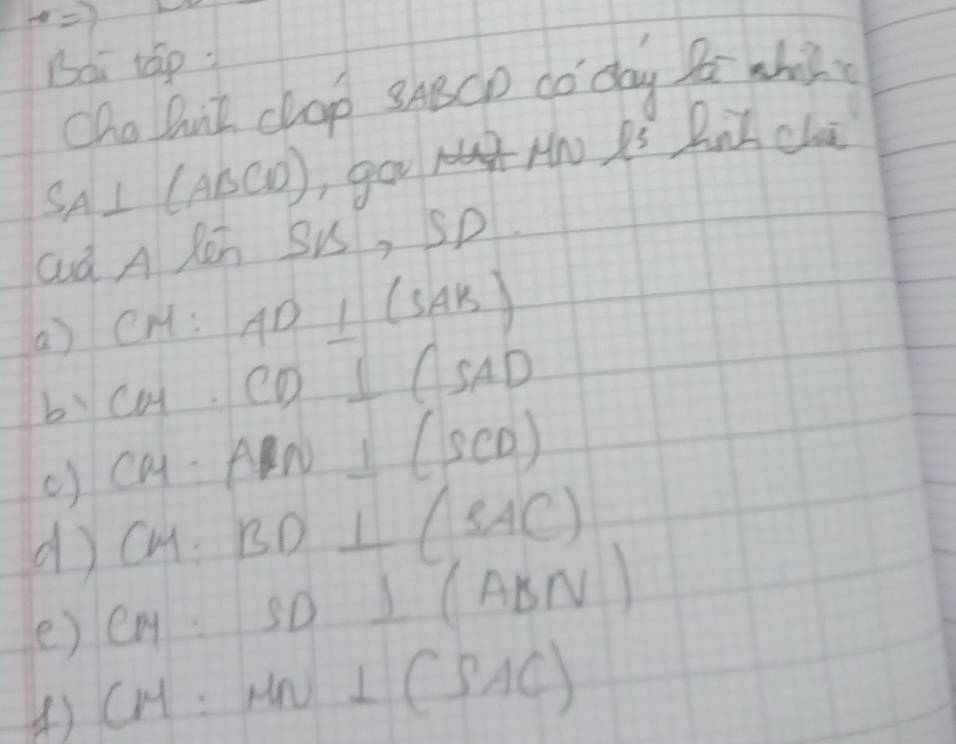 =>
Bài tập:
Cho hình chóp SABCD có đáy là
SA ⊥ (ABCD), gọi MN là hình chiế
của A lên SB, SD.
a) CM: AD ⊥ (SAB)
b) CM. CD ⊥ (SAD
c) CM. AN ⊥ (SCD)
d) CM. BD ⊥ (SAC)
e) CM. SD ⊥ (ABN)
f) CM: MN ⊥ (SAC)